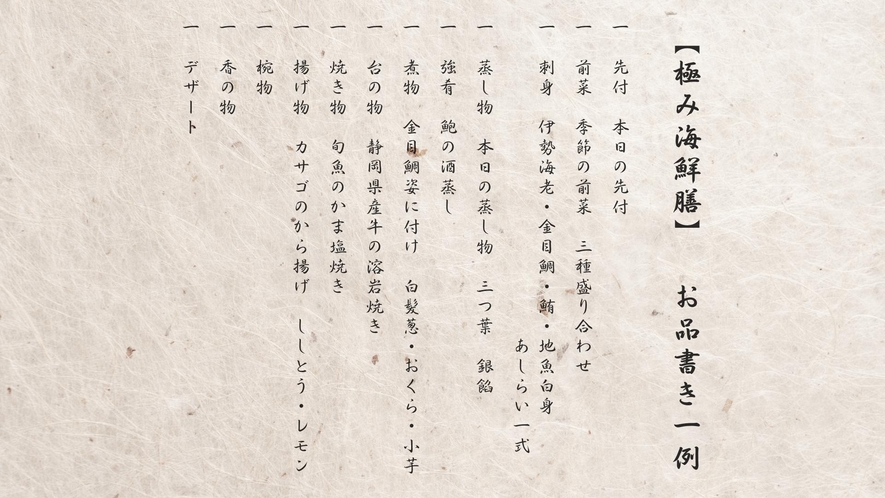 【極み海鮮膳】 お品書き一例
一 先付 本日の先付
一 前菜 季節の前菜 三種盛り合わせ
一 刺身 伊勢海老・金目鯛・鮪・地魚白身
あしらい一式
一 蒸し物 本日の蒸し物 三つ葉 銀餡
一 強肴 鮑の酒蒸し
一 煮物 金目鯛姿に付け 白髪葱・おくら・小芋
一 台の物 静岡県産牛の溶岩焼き
一 焼き物 旬魚のかま塩焼き
一 揚げ物 カサゴのから揚げ ししとう・レモン
一 椀物
一 香の物
一 デザート